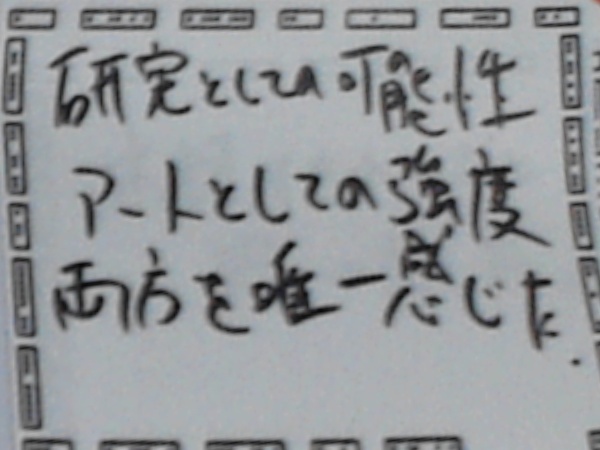 研究としての可能性
アートとしての強度
両方を唯一感じた.